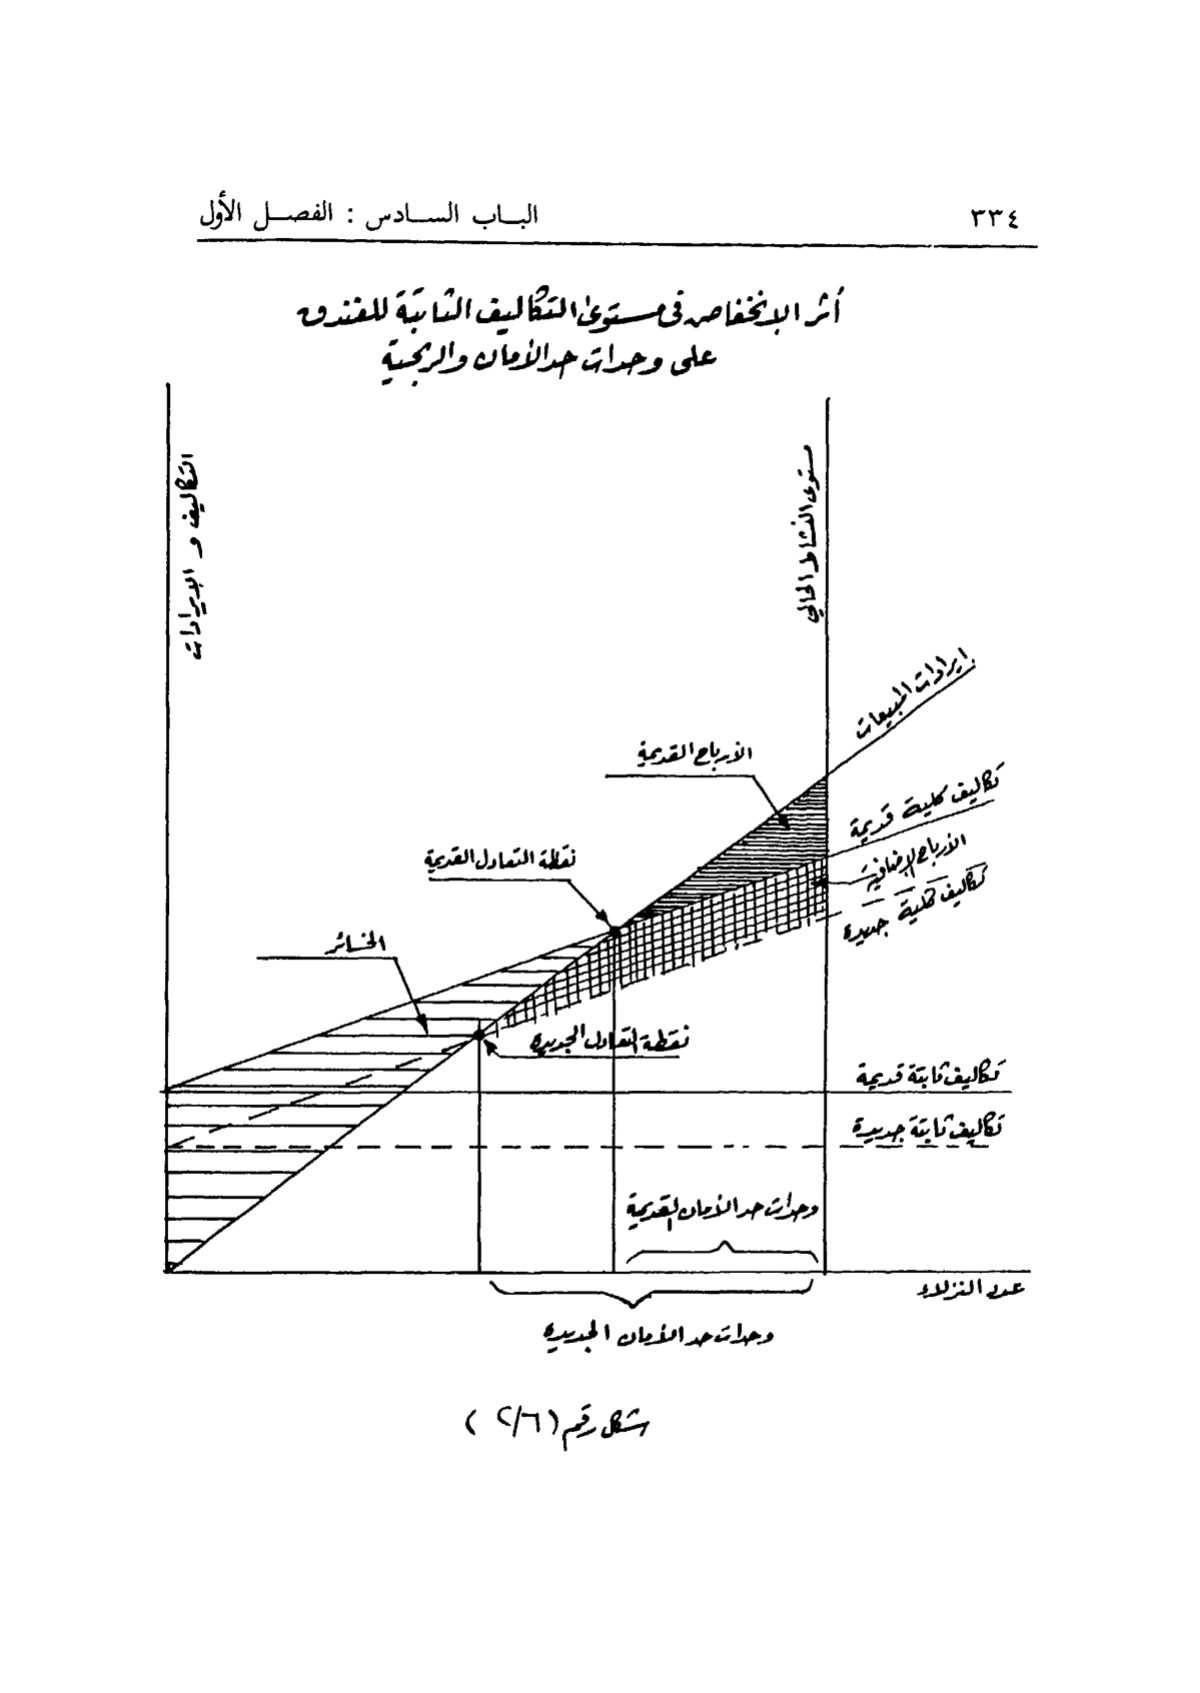 ٣٣٤
الباب السادس : الفصل الأول
أثر الإنخفاص فى مستوى التكاليف الثابتة للفندق
على وحدات حد الأمان والربحية
التكاليف و الإيرادات
مستوى النشاط الحالي
إيرادات المبيعات
الأرباح القديمة
تكاليف كلية قديمة
الأرباح الإضافية
تكاليف كلية جديدة
نقطة التعادل القديمة
الخسائر
نقطة التعادل الجديدة
تكاليف ثابتة قديمة
تكاليف ثابتة جديدة
وحدات حد الأمان القديمة
عدد النزلاء
وحدات حد الأمان الجديدة
شكل رقم (٢/٦)